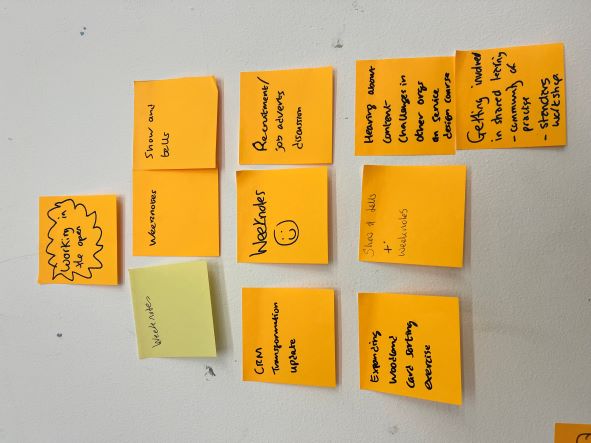 Working in
the open
Weeknotes
Weeknotes
Show and
tells
CRM
Transformation
update
Weeknotes
Recruitment/
job adverts
discussion
Expanding
Woodland
Card sorting
exercise
Show & tells
+
weeknotes
Hearing about
content
challenges in
other orgs
on service
design course
Getting involved
in shared learning
- community of
practise
- standars
workshop